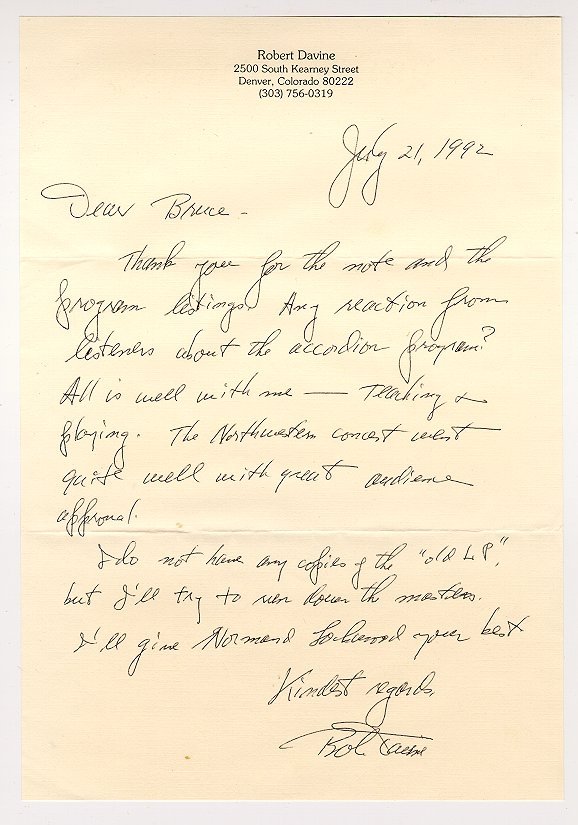 Robert Davine
2500 South Kearney Street
Denver, Colorado 80222
(303) 756-0319
July 21, 1992
Dear Bruce -
Thank you for the note and the
program listings. Any reaction from
listeners about the accordion program?
All is well with me — Teaching &
playing. The Northwestern concert went
quite well with great audience
approval.
I do not have any copies of the "old LP",
but I'll try to run down the masters.
I'll give Normand Lockwood your best
Kindest regards,
Bob Davine